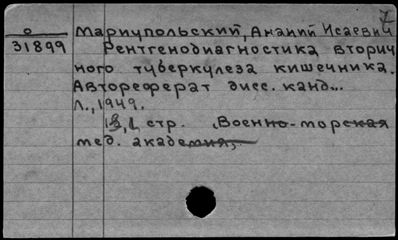 о
31899
Мариупольский, Ананий Исаевич
Рентгенодиагностика вторич
ного туберкулеза кишечника.
Автореферат дисс. канд...
Л., 1949.
стр. Военно-морская
мед. академия,